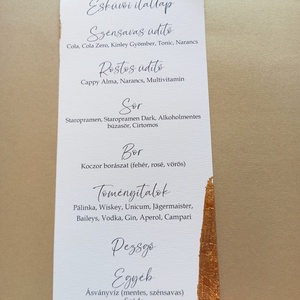 Esküvői itallap
Szénsavas üdítő
Cola, Cola Zero, Kinley Gyömber, Tonic, Narancs
Rostos üdítő
Cappy Alma, Narancs, Multivitamin
Sör
Staropramen, Staropramen Dark, Alkoholmentes
búzasör, Citromos
Bor
Koczor borászat (fehér, rosé, vörös)
Töményitalok
Pálinka, Wiskey, Unicum, Jägermeister,
Baileys, Vodka, Gin, Aperol, Campari
Pezsgő
Egyéb
Ásványvíz (mentes, szénsavas)